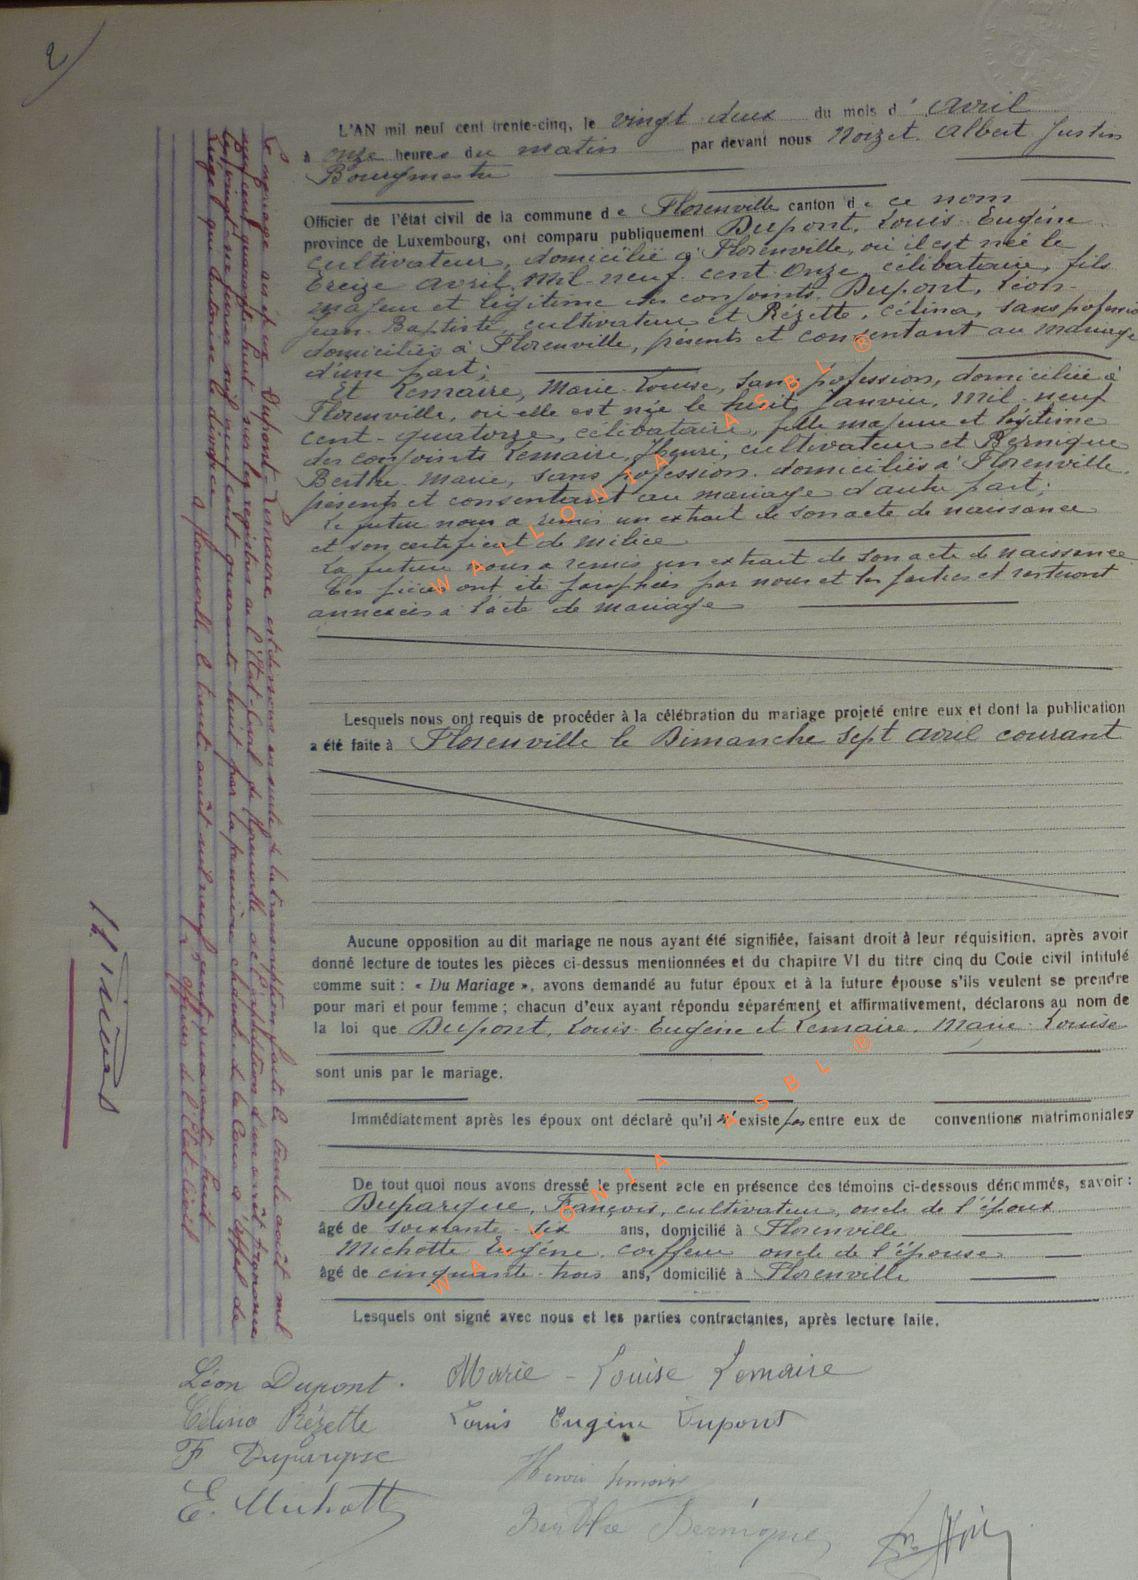 2
L'AN mil neuf cent trente-cinq, le vingt deux du mois d' avril
à onze heures du matin par devant nous Noizet Albert Justin
Bourgmestre
Officier de l'état civil de la commune de Florenville canton de ce nom
province de Luxembourg, ont comparu publiquement Dupont, Louis Eugène
cultivateur, domicilié à Florenville, où il est né le
treize avril mil neuf cent onze, célibataire, fils
majeur et légitime des conjoints Dupont, Léon-
Jean-Baptiste, cultivateur et Rézette, Célina, sans profession
domiciliés à Florenville, présents et consentant au mariage
d'une part;
Et Lemaire, Marie-Louise, sans profession, domiciliée à
Florenville, où elle est née le huit janvier, mil neuf
cent-quatorze, célibataire, fille majeure et légitime
des conjoints Lemaire, Henri, cultivateur et Bernique
Berthe-Marie, sans profession domiciliés à Florenville,
présents et consentant au mariage d'autre part;
Le futur nous a remis un extrait de son acte de naissance
et son certificat de milice
La future nous a remis un extrait de son acte de naissance
Ces pièces ont été paraphées par nous et les parties et resteront
annexées à l'acte de mariage
Lesquels nous ont requis de procéder à la célébration du mariage projeté entre eux et dont la publication
a été faite à Florenville le Dimanche sept avril courant
Aucune opposition au dit mariage ne nous ayant été signifiée, faisant droit à leur réquisition, après avoir
donné lecture de toutes les pièces ci-dessus mentionnées et du chapitre VI du titre cinq du Code civil intitulé
comme suit : « Du Mariage », avons demandé au futur époux et à la future épouse s'ils veulent se prendre
pour mari et pour femme ; chacun d'eux ayant répondu séparément et affirmativement, déclarons au nom de
la loi que Dupont, Louis Eugène et Lemaire, Marie-Louise
sont unis par le mariage.
Immédiatement après les époux ont déclaré qu'il n'existe pas entre eux de conventions matrimoniales
De tout quoi nous avons dressé le présent acte en présence des témoins ci-dessous dénommés, savoir :
Duparque, François, cultivateur, oncle de l'époux
âgé de soixante-six ans, domicilié à Florenville
Michotte Eugène, coiffeur oncle de l'épouse
âgé de cinquante-trois ans, domicilié à Florenville
Lesquels ont signé avec nous et les parties contractantes, après lecture faite.
Léon Dupont. Marie-Louise Lemaire
Célina Rézette Louis Eugène Dupont
F Duparque Henri Lemaire
E. Michotte Berthe Bernique
Le mariage des époux Dupont-Lemaire, est dissous ensuite de la transcription faite le trente août mil
neuf cent quarante huit sur les registres de l'Etat-Civil de Florenville de l'expédition d'un arrêt prononcé
le mil neuf cent quarante huit par la première chambre de la Cour d'Appel de
Liège qui autorise le divorce
à Florenville le trente août mil neuf cent quarante huit
L'Officier de l'Etat Civil
WALLONIA ASBL ®
WALLONIA ASBL ®